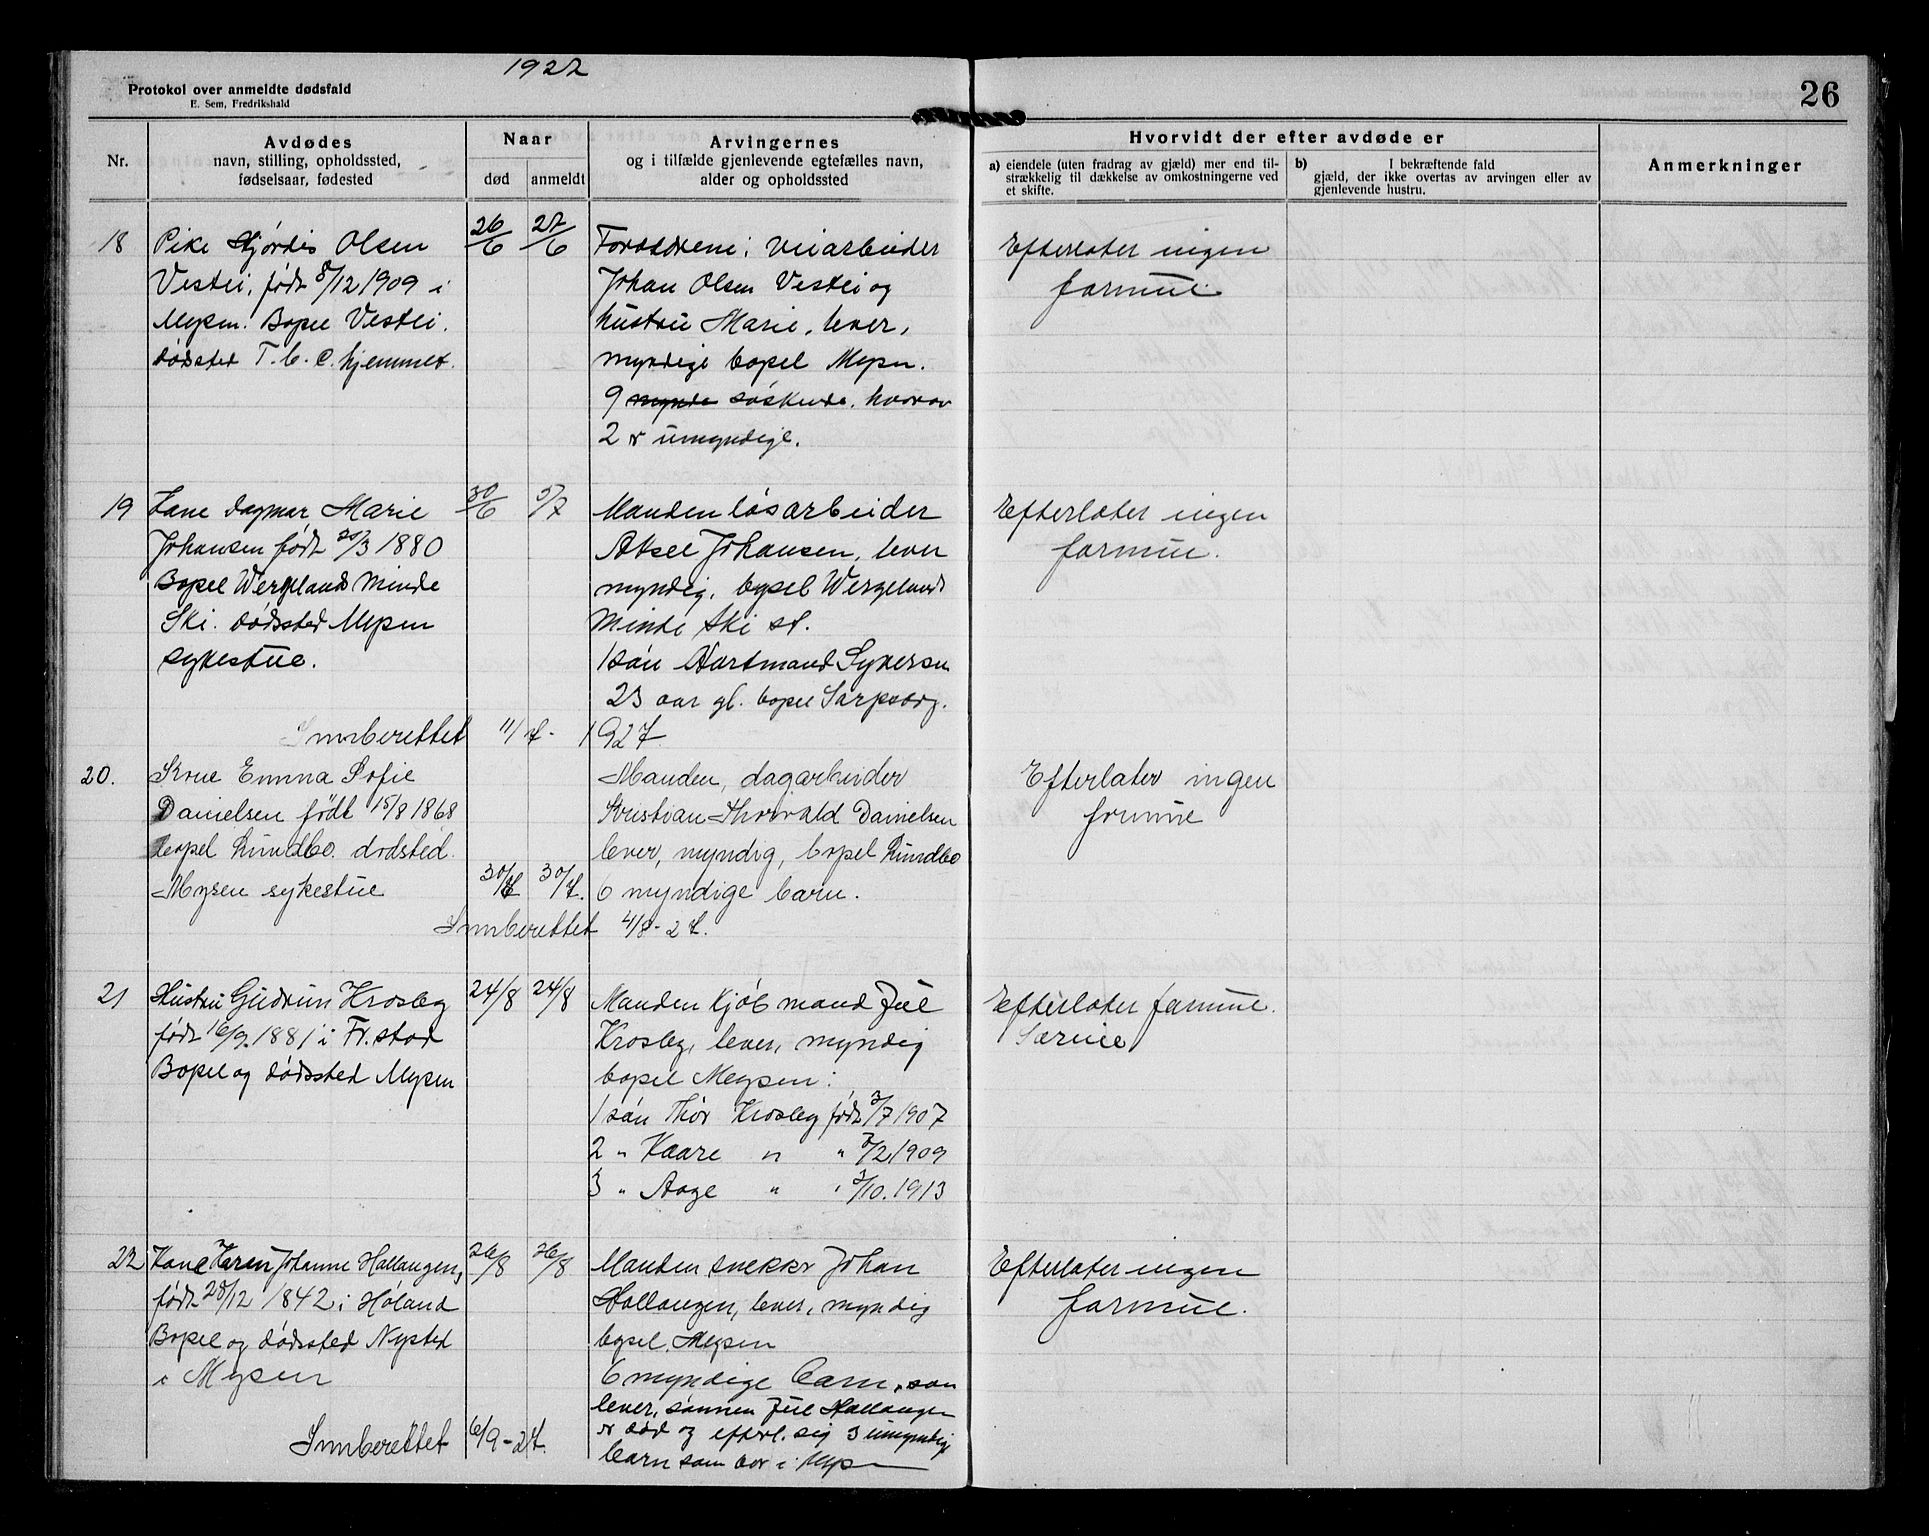 1922
Protokol over anmeldte dødsfald
E. Sem, Fredrikshald
26
Nr.
Avdødes
navn, stilling, opholdssted,
fødselsaar, fødested
Naar
død
anmeldt
Arvingernes
og i tilfælde gjenlevende egtefælles navn,
alder og opholdssted
Hvorvidt der efter avdøde er
a) eiendele (uten fradrag av gjæld) mer end til-
strækkelig til dækkelse av omkostningerne ved
et skifte.
b) I bekræftende fald
gjæld, der ikke overtas av arvingen eller av
gjenlevende hustru.
Anmerkninger
18
Pike Hjørdis Olsen
Vestli, født 8/12 1909 i
Mysen. Bopel Vestli.
dødsted T.b.c. hjemmet.
26/6
27/6
Forældrene: veiarbeider
Johan Olsen Vestli og
hustru Marie, lever,
myndige bopel Mysen.
9 mynde søskende, hvorav
2 er umyndige.
Efterlater ingen
formue.
19
Kone Dagmar Marie
Johansen født 25/3 1880
Bopel Wergelands Minde
Ski. dødssted Mysen
sykestue.
30/6
5/7
Manden løsarbeider
Aksel Johansen, lever
myndig, bopel Wergelands
Minde Ski st.
1 søn Hartmand Syversen
23 aar gl. bopel Sarpsborg.
Efterlater ingen
formue.
Innberettet 11/7- 1927.
20.
Kone Emma Sofie
Danielsen født 15/8 1868
bopel Lundbo. dødsted.
Mysen sykestue
30/7
30/7.
Manden, dagarbeider
Kristian Thorvald Danielsen
lever, myndig, bopel Lundbo
6 myndige barn.
Efterlater ingen
formue
Innberettet 4/8-27.
21
Hustru Gudrun Krosby
født 16/9.1881 i Fr.stad
Bopel og dødssted Mysen
24/8
24/8
Manden Kjøbmand Jul
Krosby, lever, myndig
bopel Mysen:
1 søn Thor Krosby født 3/7 1907
2 " Kaare " " 7/2 1909
3 " Aage " " 3/10.1913
Efterlater formue.
Særeie
22
Kone Karen Johanne Hallangen,
født 28/12 1842 i Høland
Bopel og dødssted Nysted
i Mysen
26/8
26/8
Manden snekker Johan
Hallangen, lever, myndig
bopel. Mysen
6 myndige barn, som
lever, sønnen Jul Hallangen
er død og efterl. sig 3 umyndige
barn som bor i Mysen
Efterlater ingen
formue.
Innberettet 6/9-27.